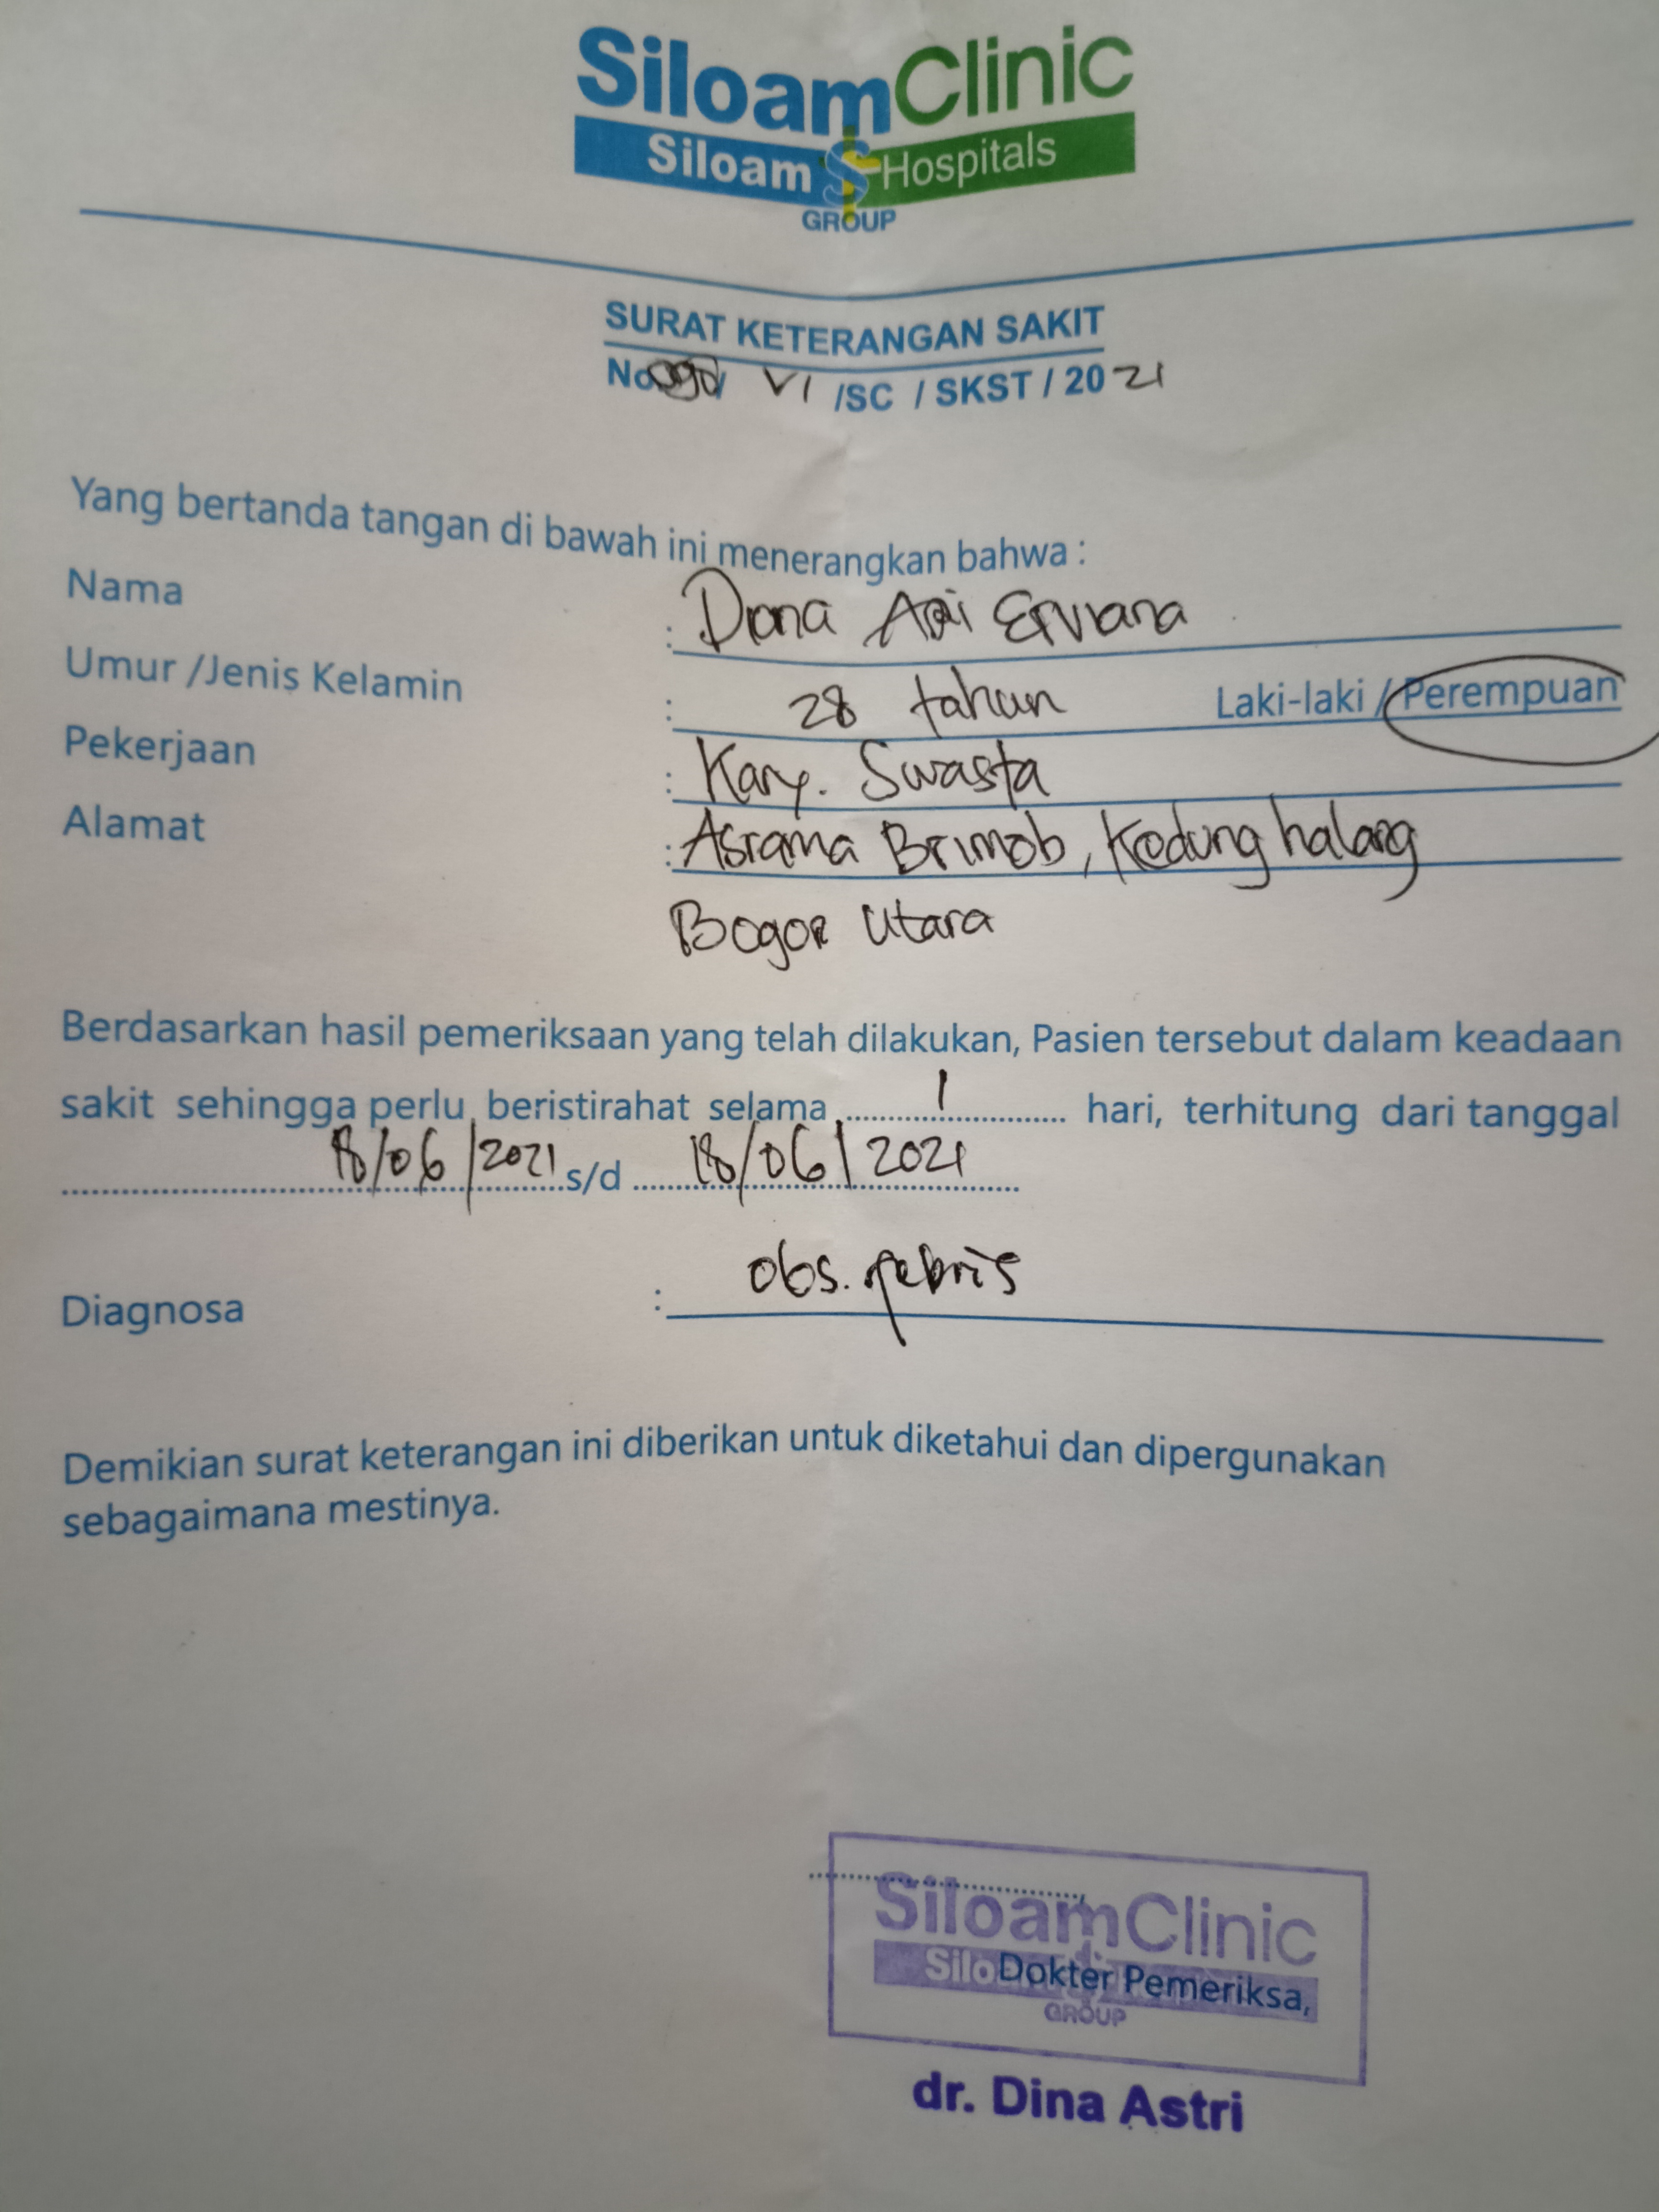 SiloamClinic
Siloam Hospitals
GROUP
SURAT KETERANGAN SAKIT
No. / VI /SC / SKST / 20 21
Yang bertanda tangan di bawah ini menerangkan bahwa :
Nama : Diana Erviana
Umur /Jenis Kelamin : 28 tahun Laki-laki / Perempuan
Pekerjaan : Kary. Swasta
Alamat : Asrama Brimob, Kedung halang
Bogor Utara
Berdasarkan hasil pemeriksaan yang telah dilakukan, Pasien tersebut dalam keadaan
sakit sehingga perlu beristirahat selama 1 hari, terhitung dari tanggal
18/06/2021 s/d 18/06/2021
Diagnosa : obs. febris
Demikian surat keterangan ini diberikan untuk diketahui dan dipergunakan
sebagaimana mestinya.
SiloamClinic
Dokter Pemeriksa,
GROUP
dr. Dina Astri